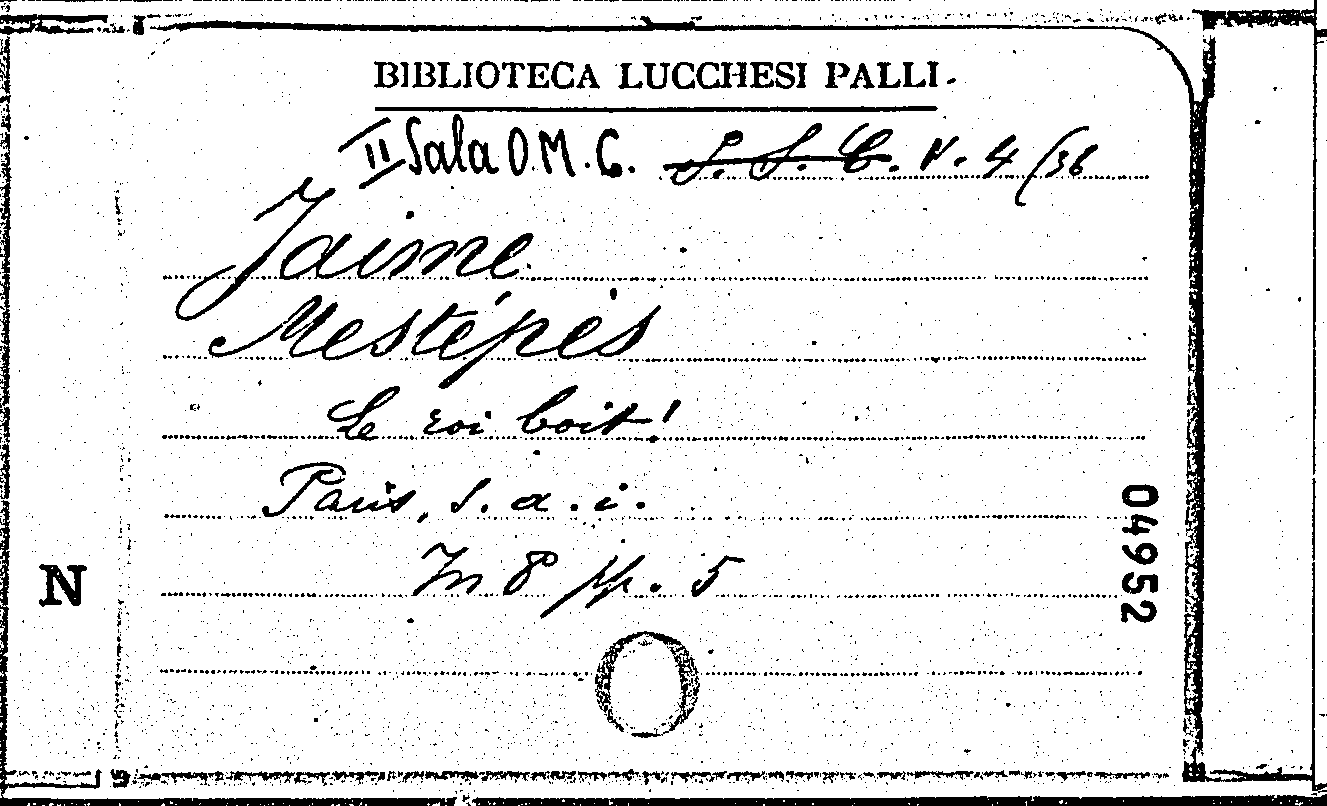 BIBLIOTECA LUCCHESI PALLI
II Sala O.M.C. S. S. C. V. 4 (36
Jaime
Mestépès
Le roi boit!
Paris, s. a. i.
In 8 pp. 5
N
04952